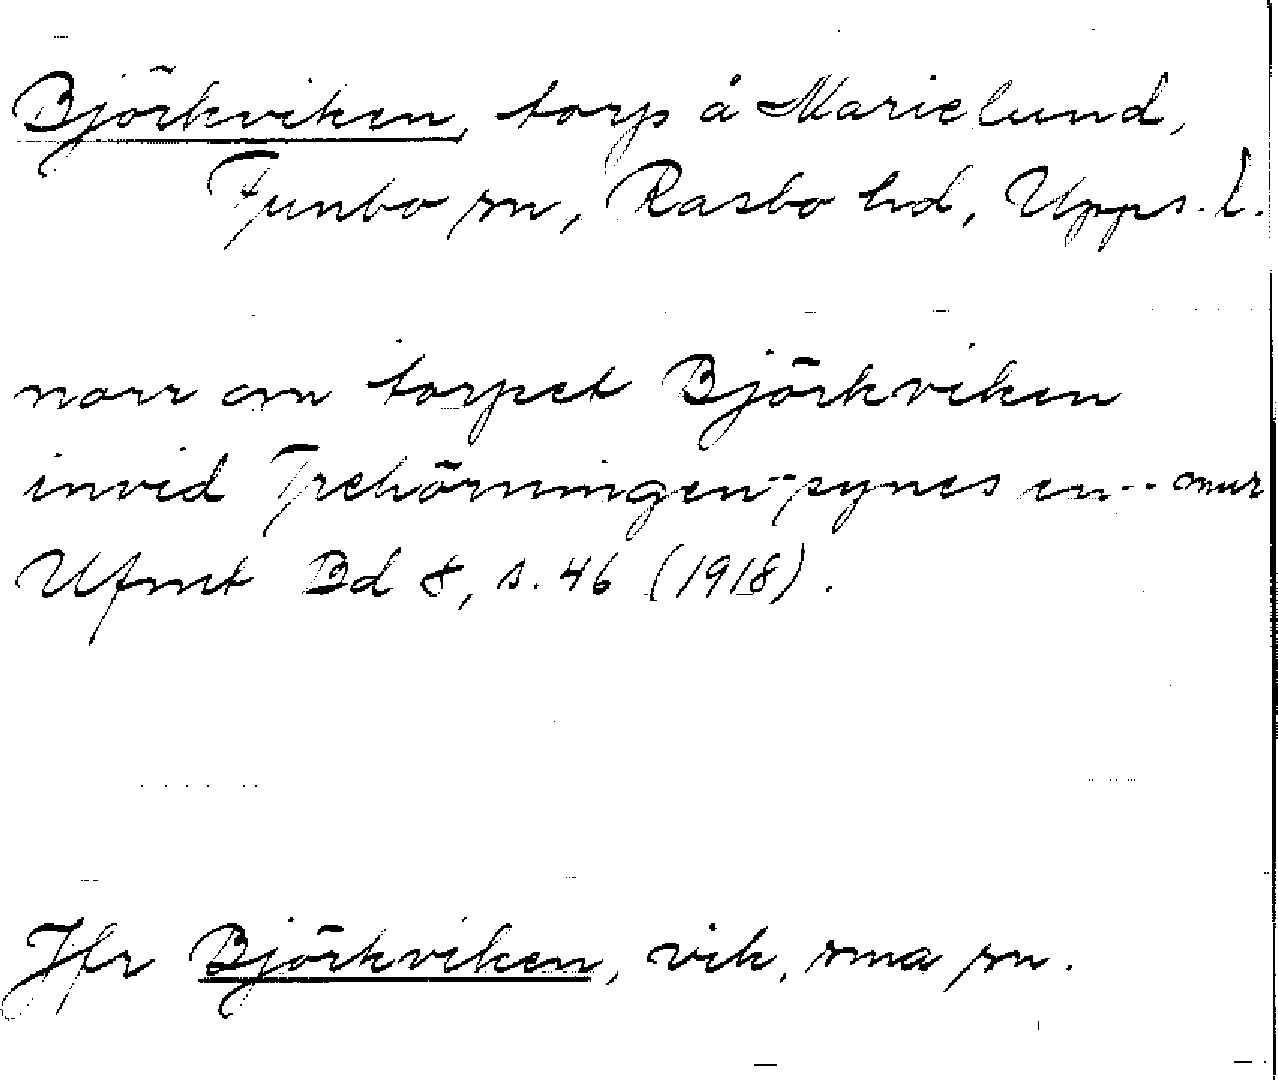 Björkviken, torp å Marielund,
Funbo sn, Rasbo hd, Upps. l.
norr om torpet Björkviken
invid Trehörningen -- synes en -- mur
Ufmt Bd 8, s. 46 (1918).
Jfr Björkviken, vik, sma sn.